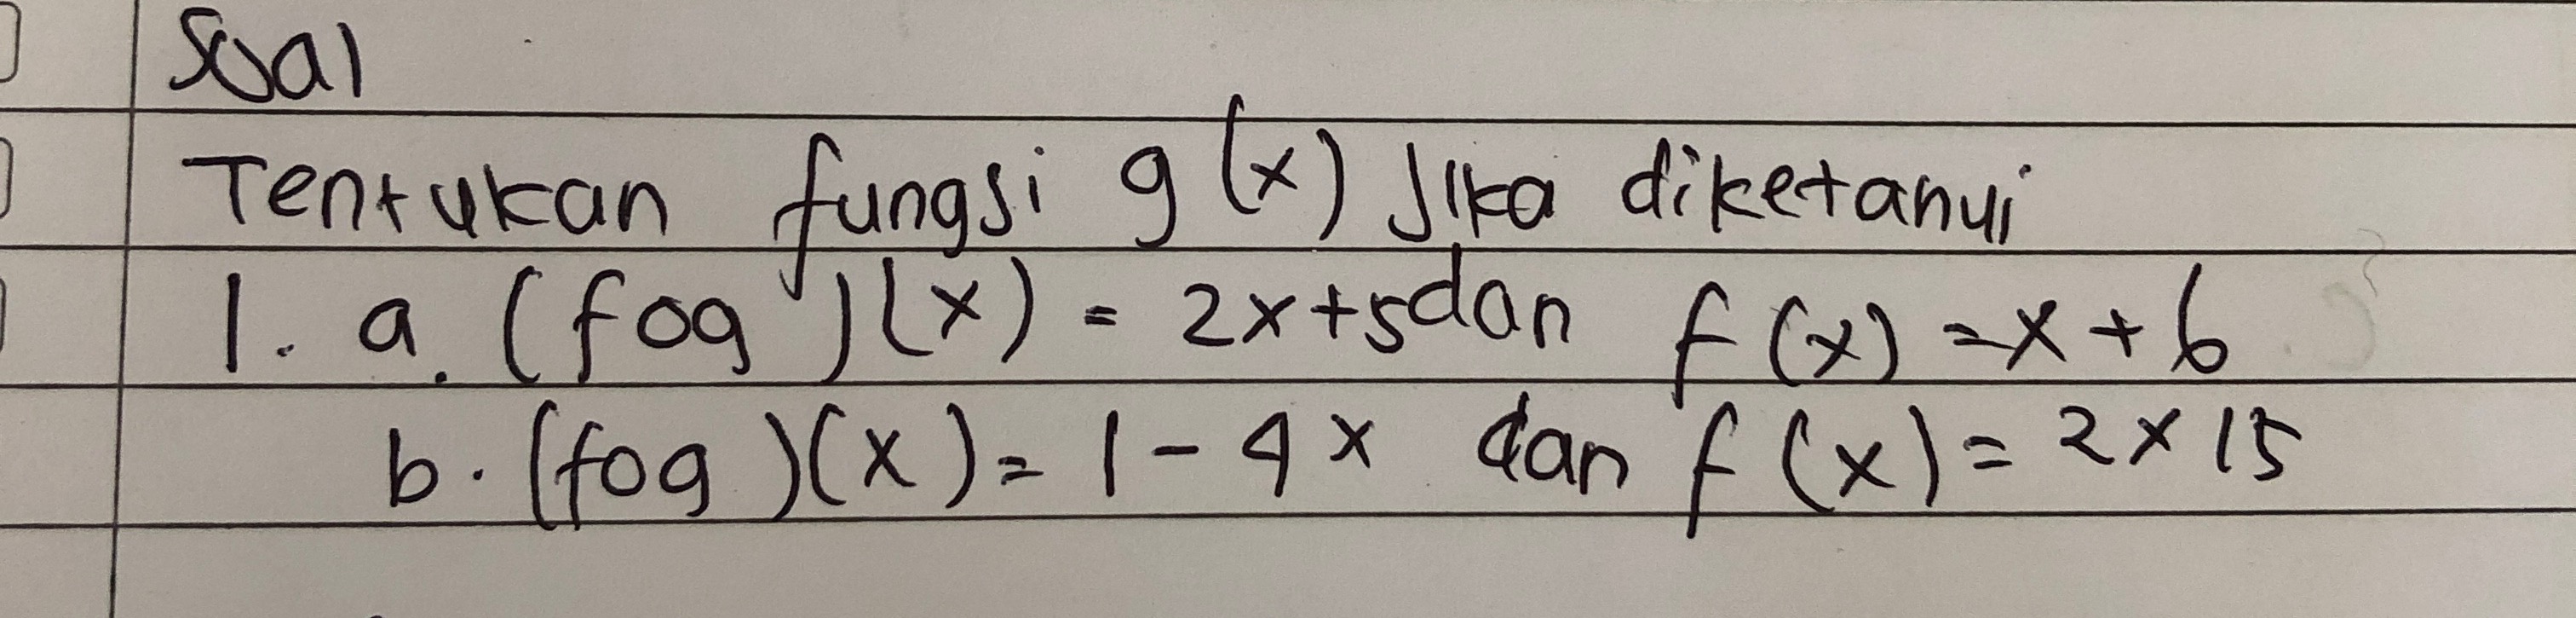 Soal
Tentukan fungsi g(x) Jika diketahui
1. a. (fog)(x) = 2x+5 dan f(x) = x + 6
b. (fog)(x) = 1 - 4x dan f(x) = 2 x 15